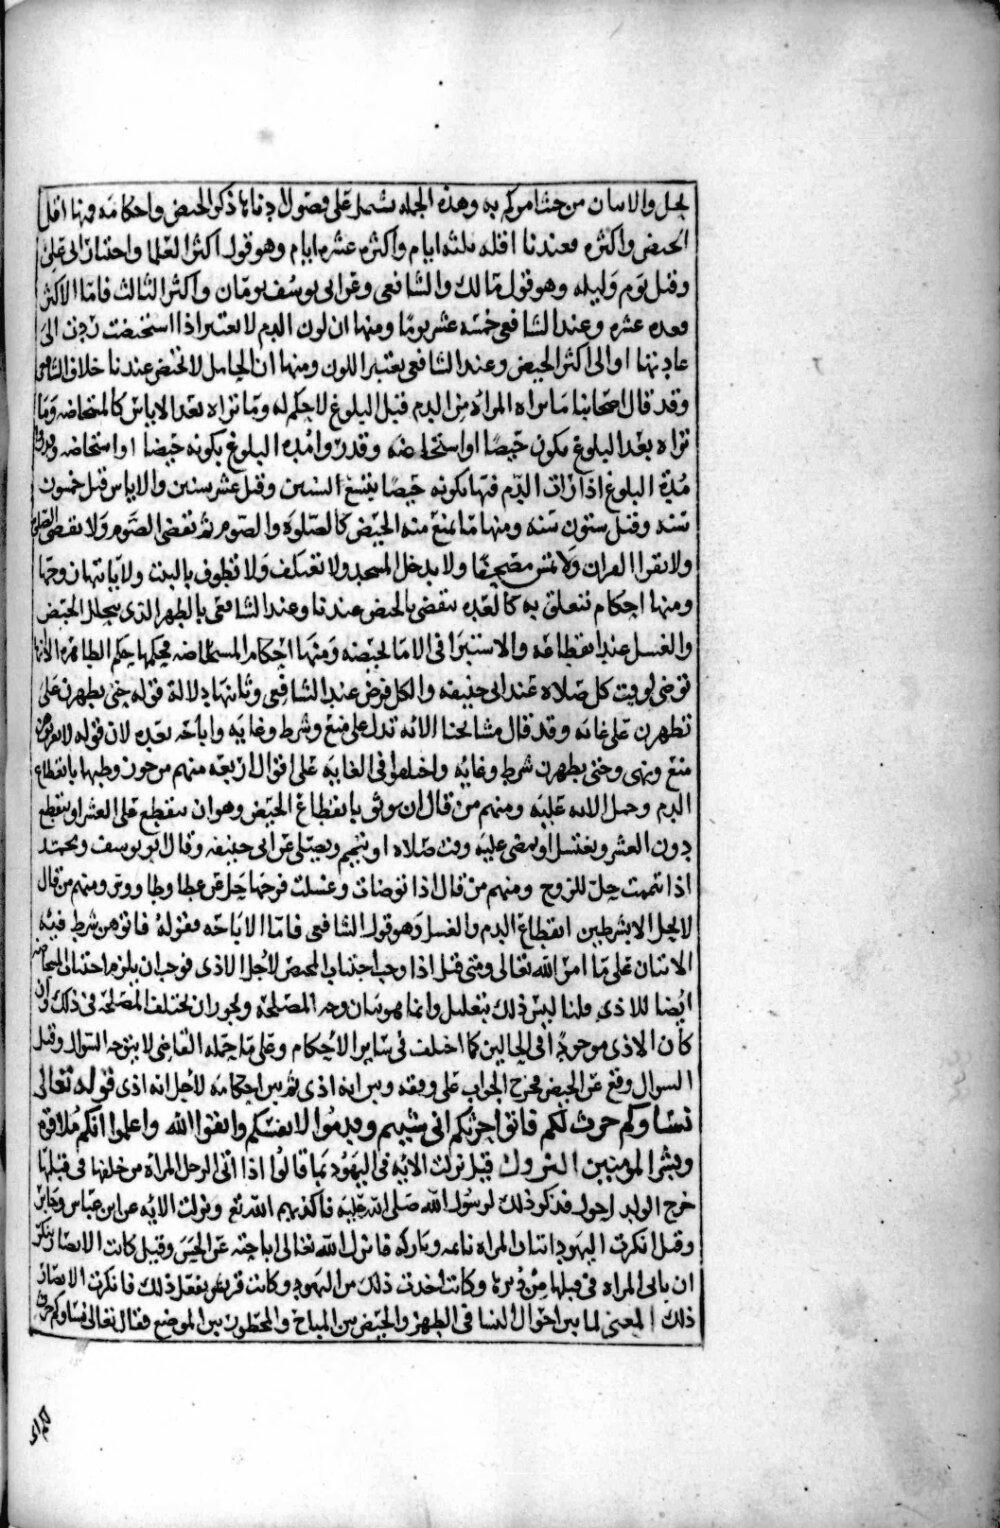 يحل والاتيان من حيث امركم به وهذه الجمله تشتمل على فصول الاول في ذكر الحيض واحكامه فمنها اقل
الحيض واكثره فعندنا اقله ثلثه ايام واكثره عشره ايام وهو قول اكثر العلما واختيار ابي علي
وقيل يوم وليله وهو قول مالك والشافعي وعن ابي يوسف يومان واكثر الثالث فاما الاكثر
فعده عشره وعند الشافعي خمسه عشر يوما ومنها ان لون الدم لا يعتبر اذا استحيضت ردت الى
عادتها او الى اكثر الحيض وعند الشافعي يعتبر اللون ومنها ان الحامل لا تحيض عندنا خلاف الشافعي
وقد قال اصحابنا ما تراه المراه من الدم قبل البلوغ لا حكم له وما تراه بعد الاياس كالمستحاضه وما
تراه بعد البلوغ يكون حيضا او استحاضه وقدروا مده البلوغ بكونه حيضا او استحاضه
مدة البلوغ اذا رات الدم فيها بكونه حيضا بتسع السنين وقيل عشر سنين والاياس قيل خمسون
سنه وقيل ستون سنه ومنها ما يمنع منه الحيض كالصلوه والصوم ثم تقضي الصوم ولا تقضي الصلوه
ولا تقرا القران ولا تمس مصحفا ولا تدخل المسجد ولا تعتكف ولا تطوف بالبيت ولا ياتيها زوجها
ومنها احكام تتعلق به كالعده تنقضي بالحيض عندنا وعند الشافعي بالطهر الذي يتخلل الحيض
والغسل عند انقطاعه والاستبرا في الاما بحيضه ومنها احكام المستحاضه فحكمها حكم الطاهره الا انها
توضي لوقت كل صلاه عند ابي حنيفه والكل فرض عند الشافعي وثانيها دلالة قوله حتى يطهرن على
تطهرن على غايه وقد قال مشايخنا الايه تدل على منع وشرط وغايه واباحه بعده لان قوله لا تقربوهن
منع ونهي وحتى يطهرن شرط وغايه واختلفوا في الغايه على اقوال اربعه منهم من جوز وطيها بانقطاع
الدم وحمل الايه عليه ومنهم من قال ان يوثق بانقطاع الحيض وهو ان ينقطع على العشر او ينقطع
دون العشر ويغتسل او يمضي عليه وقت صلاه او تتيمم وتصلي عن ابي حنيفه وقال ابو يوسف ومحمد
اذا تيممت حل للزوج ومنهم من قال اذا توضات وغسلت فرجها حل عن عطا وطاووس ومنهم من قال
لا يحل الا بشرطين انقطاع الدم والغسل وهو قول الشافعي فاما الاباحه فقوله فاتوهن شرط فيه
الاتيان على ما امر الله تعالى ومتى قيل اذا وجب اجتناب الحيض لاجل الاذى فوجب ان يلزم اجتناب المستحاضه
ايضا للاذى قلنا ليس ذلك بتعليل وانما هو بيان وجه المصلحه ويجوز ان تختلف المصلحه في ذلك وان
كان الاذى موجودا في الحالين كما اختلف في ساير الاحكام وعلى ما حمله القاضي لا يتوجه السوال وقيل
السوال وقع عن الحيض فخرج الجواب على وفقه وبين انه اذى ثم بين احكامه لاجل انه اذى قوله تعالى
نساوكم حرث لكم فاتوا حرثكم انى شيتم وقدموا لانفسكم واتقوا الله واعلموا انكم ملاقوه
وبشر المومنين النزول قيل نزلت الايه في اليهود بما قالوا اذا اتى الرجل المراه من خلفها في قبلها
خرج الولد احول فذكر ذلك لرسول الله صلى الله عليه فاكذبهم الله تع ونزلت الايه عن ابن عباس وجابر
وقيل انكرت اليهود اتيان المراه قايمه وباركه فانزل الله تعالى اباحته عن الحسن وقيل كانت الانصار تنكر
ان ياتي المراه في قبلها من دبرها وكانت اخذت ذلك من اليهود وكانت قريش تفعل ذلك فانكرت الانصار
ذلك المعنى لما بين احوال النسا في الطهر والحيض بين المباح والمحظور بين الموضع فقال تعالى نساوكم حرث